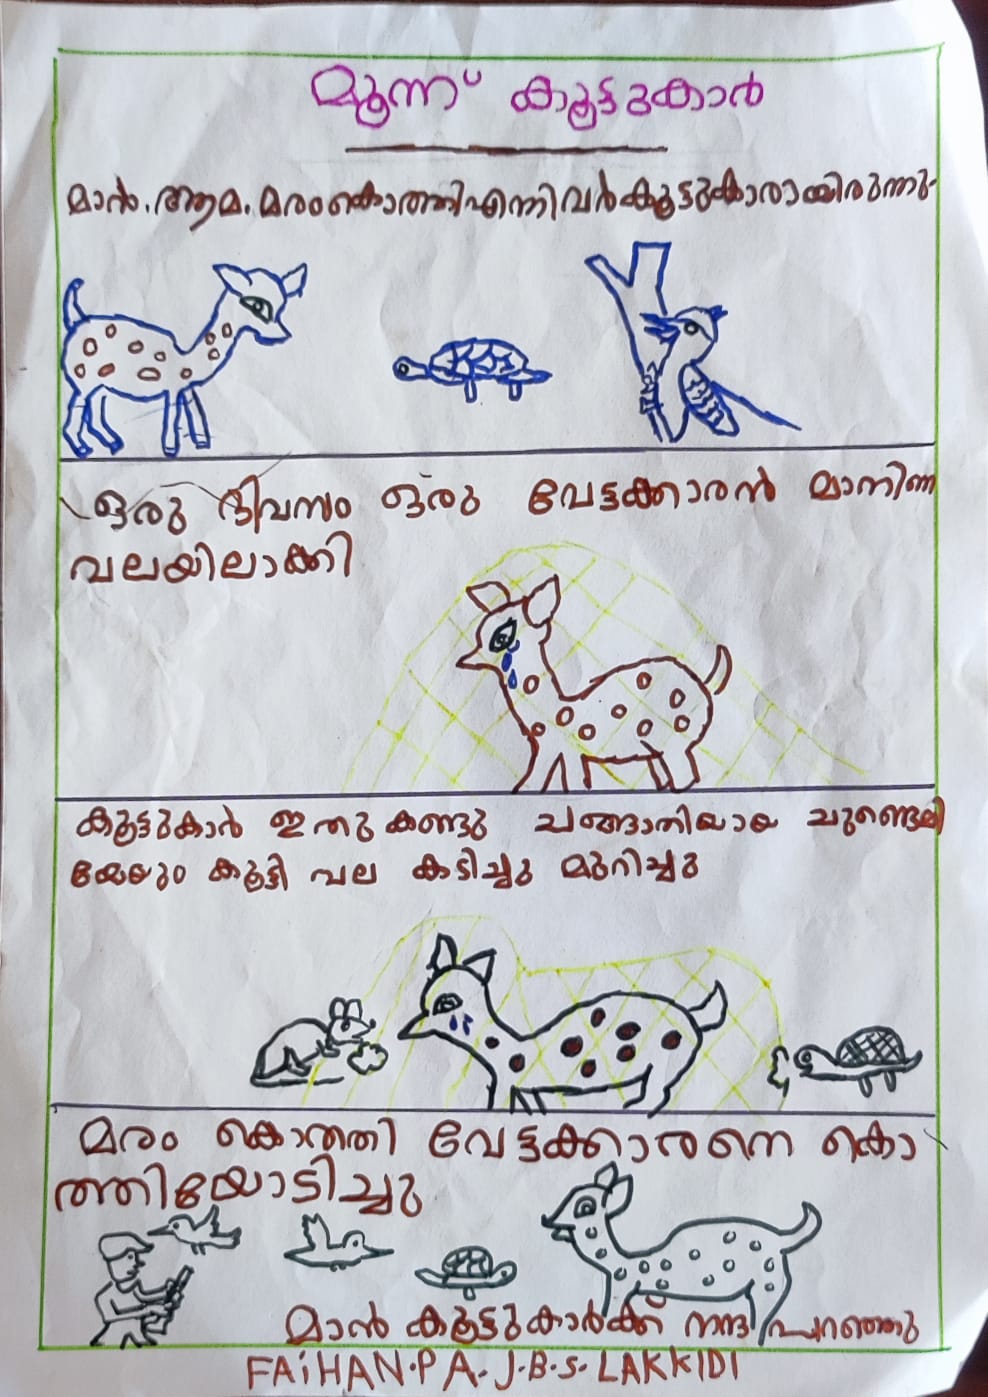 മൂന്ന് കൂട്ടുകാർ
മാൻ. ആമ. മരംകൊത്തി എന്നിവർ കൂട്ടുകാരായിരുന്നു.
ഒരു ദിവസം ഒരു വേട്ടക്കാരൻ മാനിന്ന
വലയിലാക്കി
കൂട്ടുകാർ ഇതു കണ്ടു ചങ്ങാതിയായ ചുണ്ടെലി
യേയും കൂട്ടി വല കടിച്ചു മുറിച്ചു
മരം കൊത്തി വേട്ടക്കാരനെ കൊ
ത്തിയോടിച്ചു
മാൻ കൂട്ടുകാർക്ക് നന്ദി പറഞ്ഞു
FAiHAN.P A. J.B.S. LAKKIDI